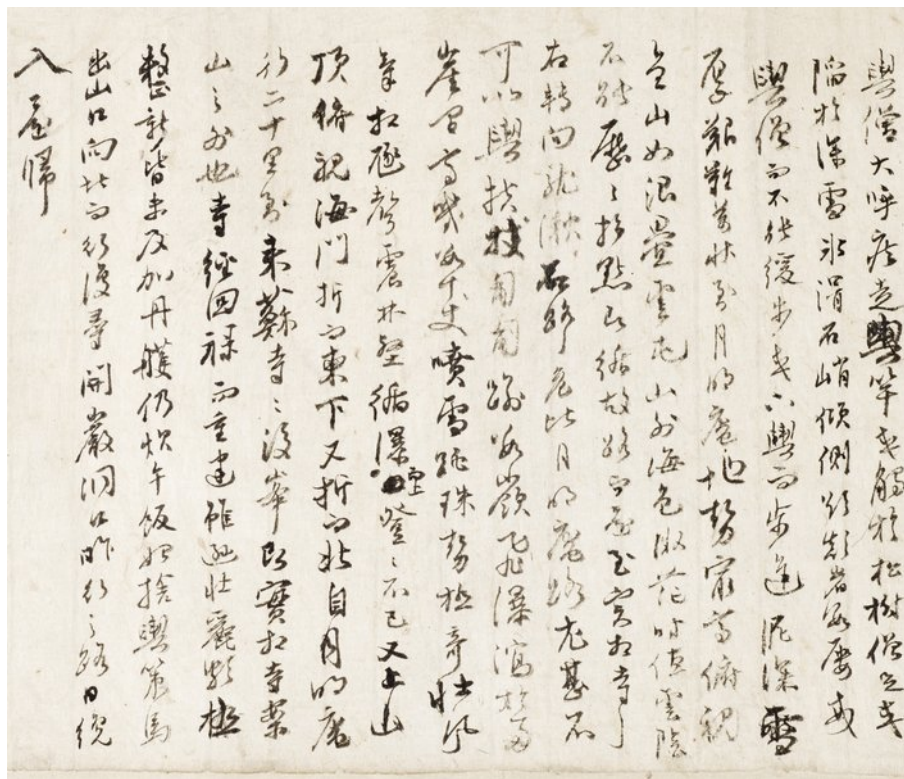 輿僧大呼疾走輿竿或觸於松樹僧足或
陷於深雪氷滑石峭傾側欲顛者數屢或
輿僧而不能緩步或下輿而步進泥深雪
厚艱難萬狀到月明庵地勢寂高俯視
金山如浪疊雲屯山外海色微茫時值雲陰
不能歷歷指點即循故路下庵至實相寺
右轉向龍湫石路危比月明庵路尤甚不
可以輿扶
崖間高或數十丈噴雪跳珠勢極奇壯風
聲震林壑循瀑登登不已又上山
頂俯視海門折而東下又折而北自月明庵
行二十里到來蘇寺寺後峯即實相寺案
山之外也寺經回祿而重建雖逊壯麗頗極
整新皆未及加丹雘仍炊午飯始捨輿策馬
出山口向北而行復尋開巖洞口昨行之路日晩
入卮歸